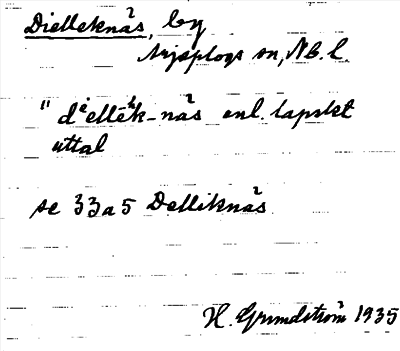 Dielleknäs, by
Arjeplogs sn, Nb. l.
" dⁱellēʰk-näs enl. lapskt
uttal
se 33a5 Delliknäs
H. Grundström 1935